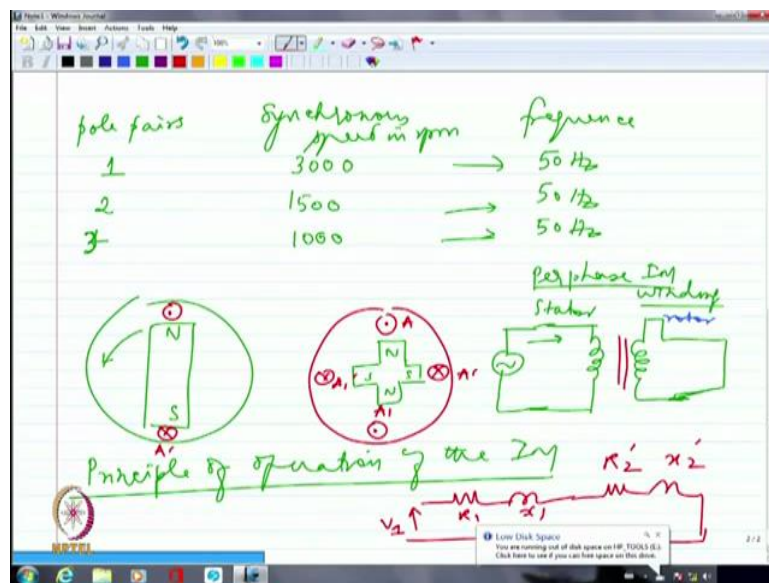 Note1 - Windows Journal
File Edit View Insert Actions Tools Help
100%
B I
pole pairs Synchronous speed in rpm frequence
1 3000 → 50 Hz
2 1500 → 50 Hz
3 1000 → 50 Hz
Perphase IM
Stator winding
rotor
N
S
A'
A
N
S S
N
A1 A'
A1
Principle of operation of the IM
R2' x2'
V1 R1 x1
NPTEL
Low Disk Space
You are running out of disk space on HP_TOOLS (E:).
Click here to see if you can free space on this drive.
2/2